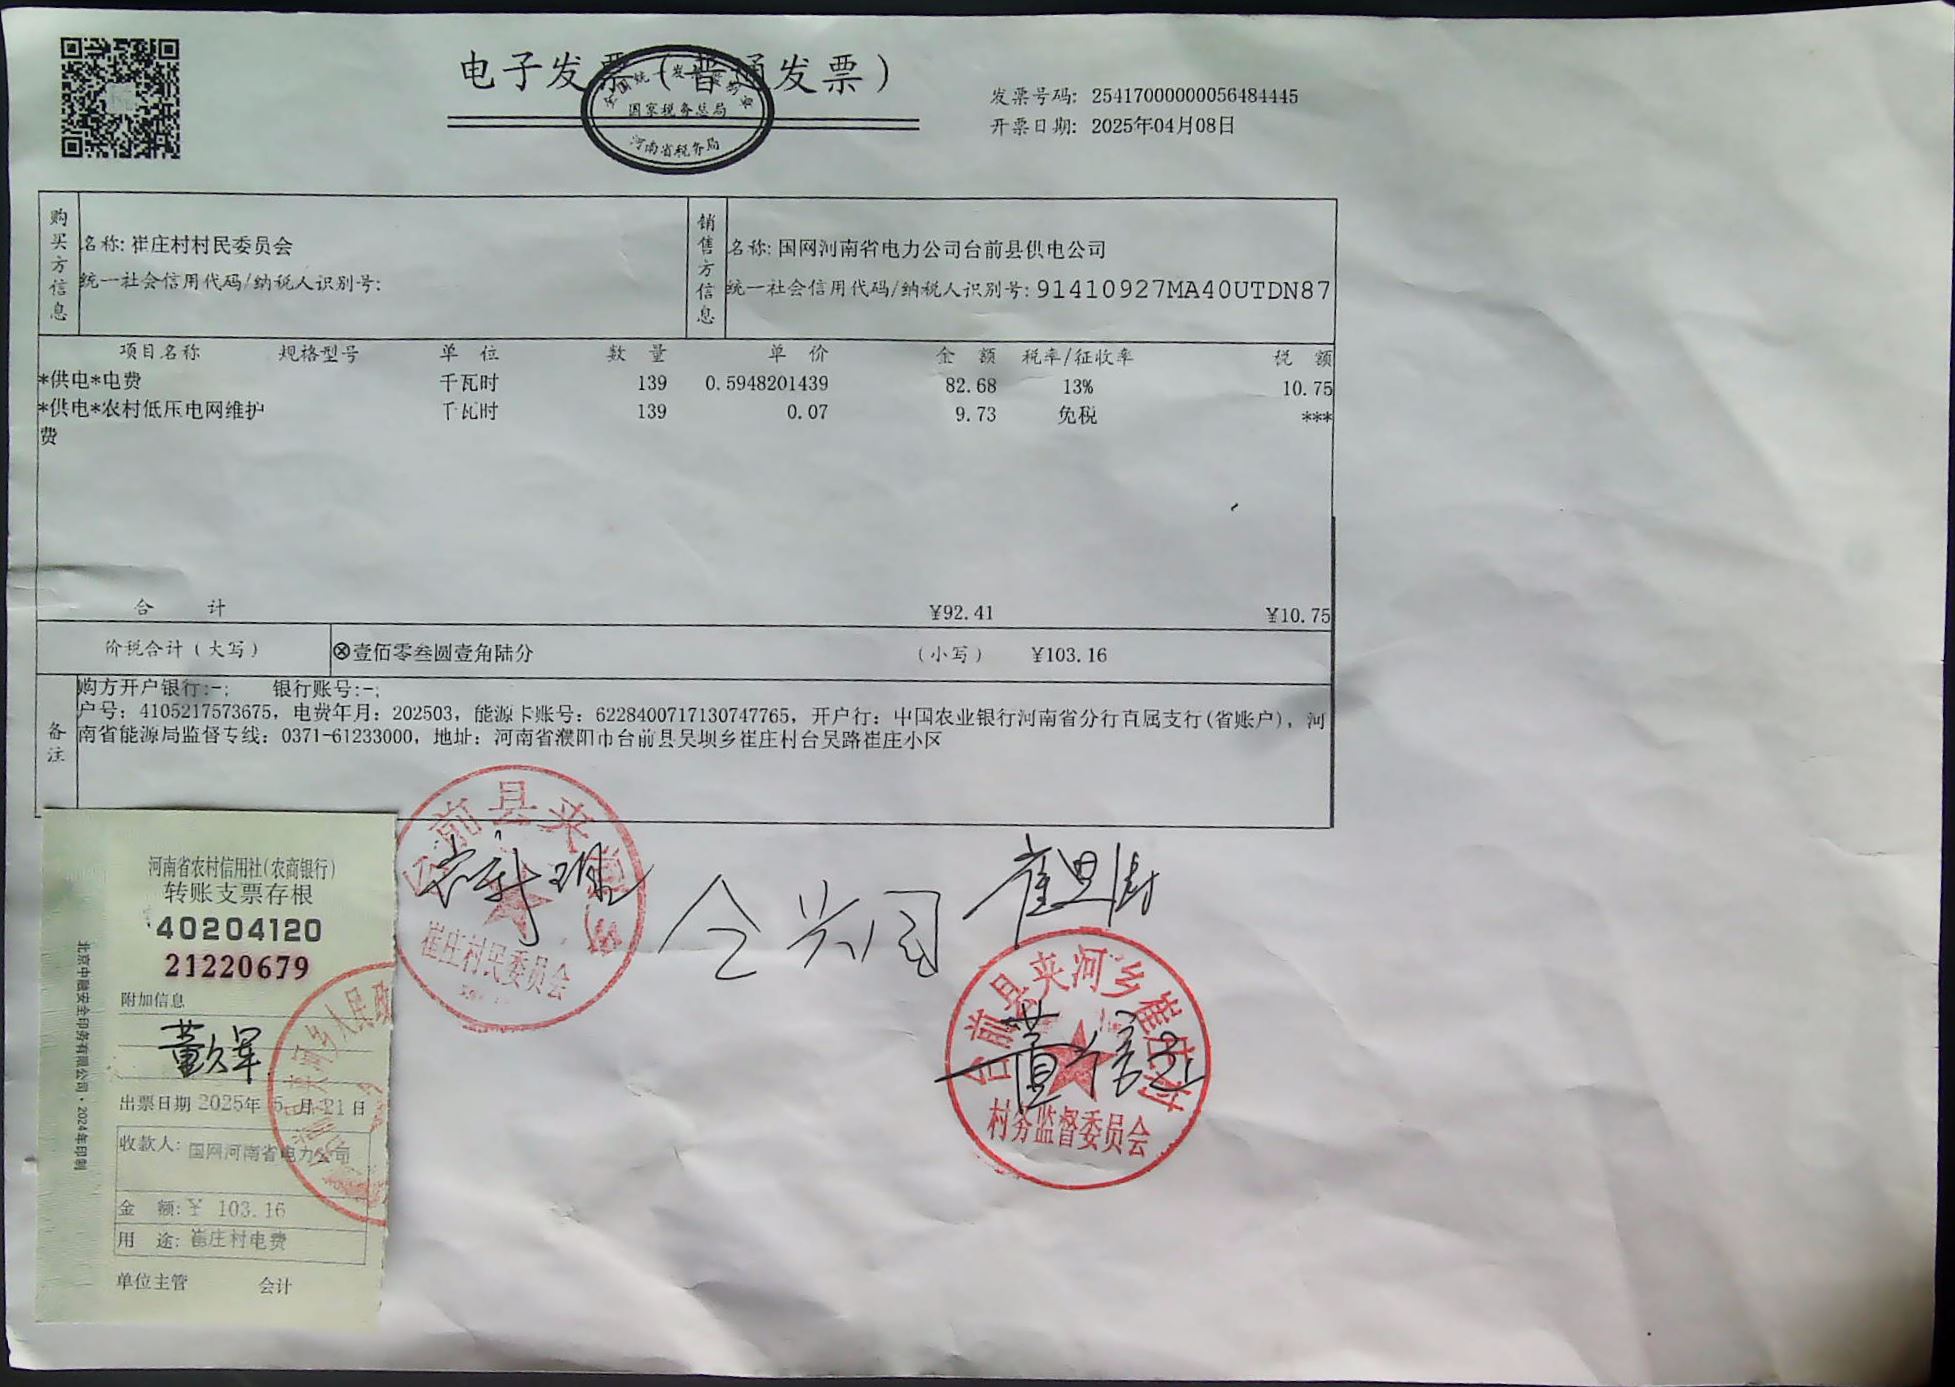 电子发票（普通发票）
全国统一发票监制章
国家税务总局
河南省税务局
发票号码: 25417000000056484445
开票日期: 2025年04月08日
购买方信息
名称: 崔庄村村民委员会
统一社会信用代码/纳税人识别号:
销售方信息
名称: 国网河南省电力公司台前县供电公司
统一社会信用代码/纳税人识别号: 91410927MA40UTDN87
项目名称 规格型号 单 位 数 量 单 价 金 额 税率/征收率 税 额
*供电*电费 千瓦时 139 0.5948201439 82.68 13% 10.75
*供电*农村低压电网维护 千瓦时 139 0.07 9.73 免税 ***
费
合 计 ¥92.41 ¥10.75
价税合计（大写） ⊗壹佰零叁圆壹角陆分 （小写） ¥103.16
备注
购方开户银行:-; 银行账号:-;
户号: 4105217573675, 电费年月: 202503, 能源卡账号: 6228400717130747765, 开户行: 中国农业银行河南省分行直属支行(省账户), 河
南省能源局监督专线: 0371-61233000, 地址: 河南省濮阳市台前县吴坝乡崔庄村台吴路崔庄小区
台前县夹河乡
崔庄村民委员会
仝兴国
台前县夹河乡崔庄村
村务监督委员会
河南省农村信用社(农商银行)
转账支票存根
40204120
21220679
附加信息
董久军
出票日期 2025年 5 月 21 日
收款人: 国网河南省电力公司
金 额: ¥ 103.16
用 途: 崔庄村电费
单位主管 会计
北京中融安全印务有限公司·2024年印制